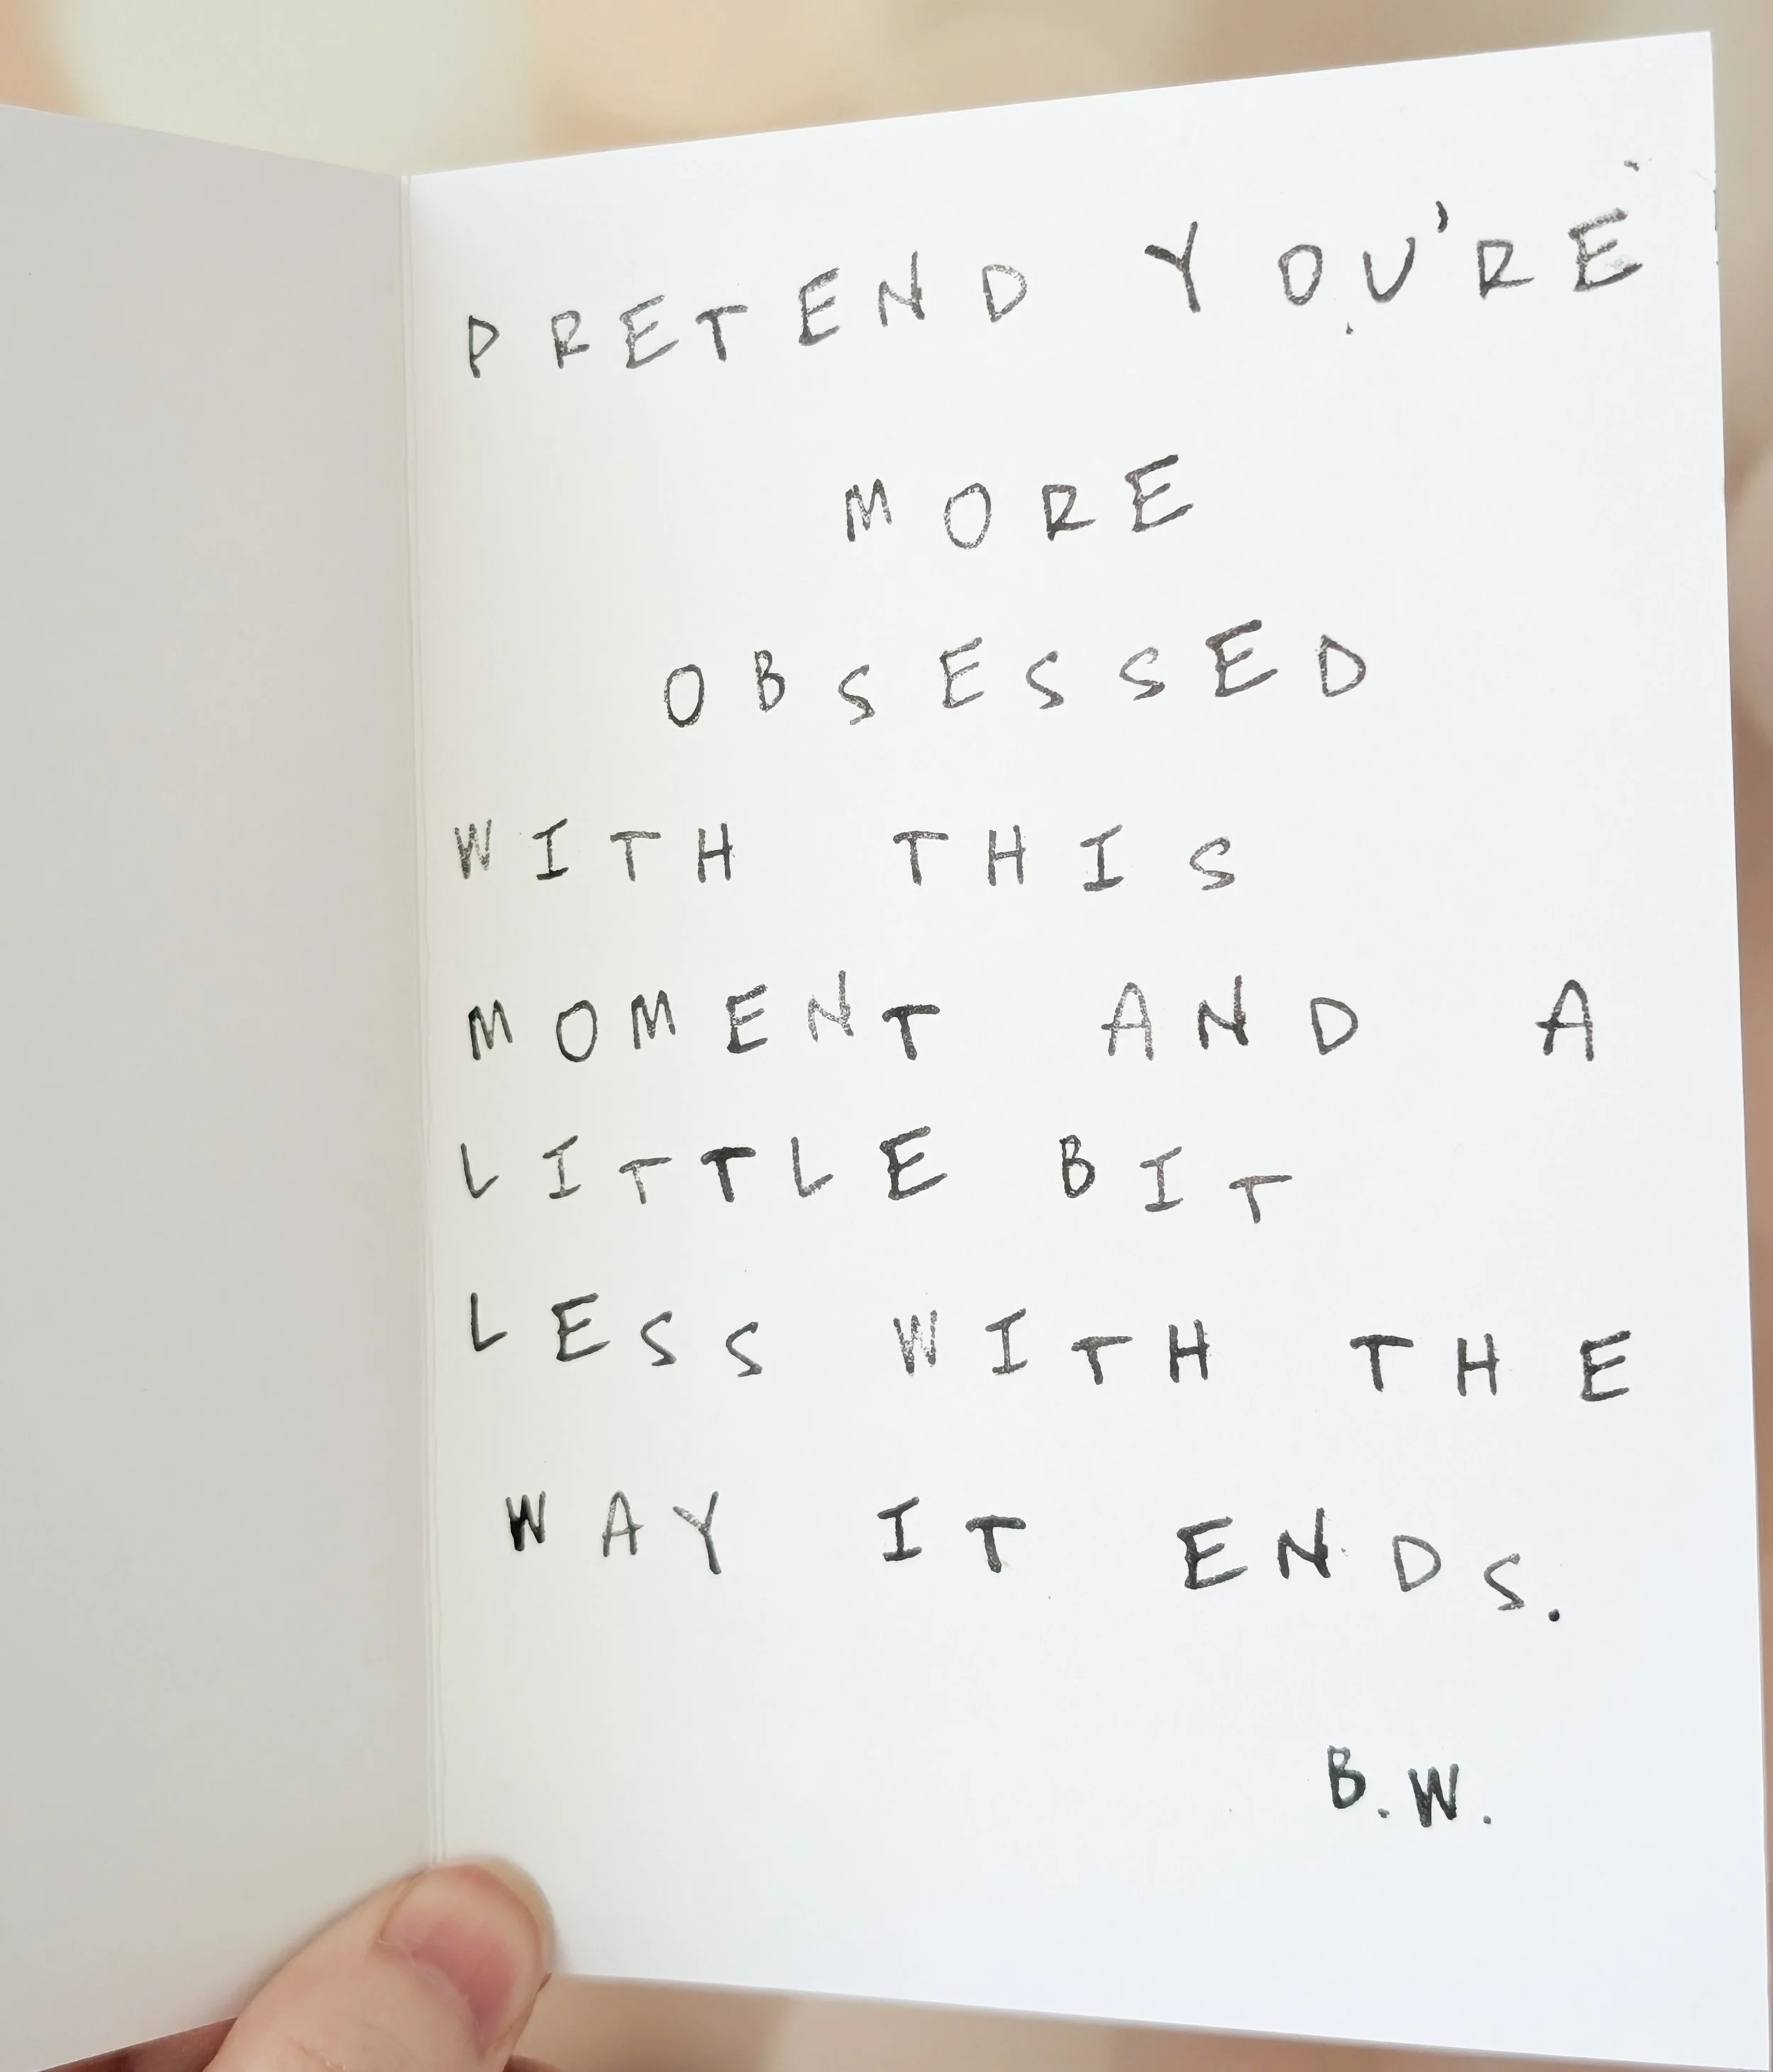 PRETEND YOU'RE
MORE
OBSESSED
WITH THIS
MOMENT AND A
LITTLE BIT
LESS WITH THE
WAY IT ENDS.
B.W.